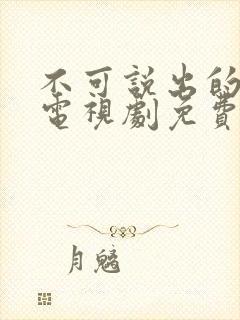 不可説出的
電視劇免費
月魑